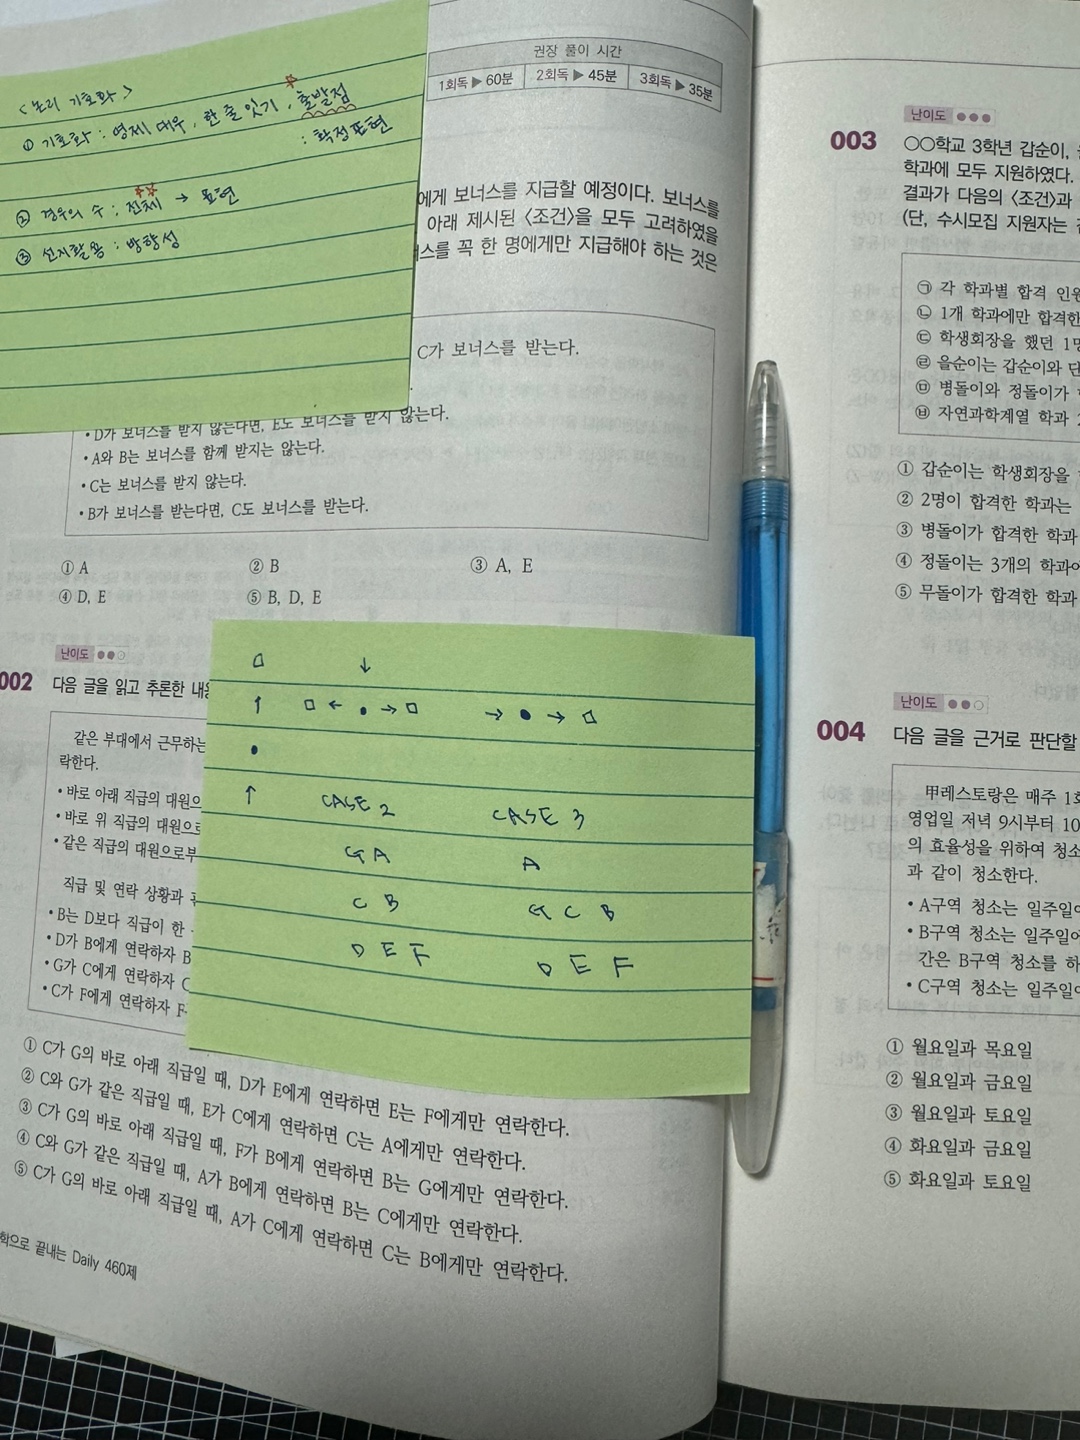 <논리 기호화>
① 기호화 : 명제 대우, 한 줄 잇기, 출발점
: 확정표현
② 경우의 수 : 전체 → 표현
③ 선지활용 : 방향성
권장 풀이 시간
1회독 ▶ 60분 2회독 ▶ 45분 3회독 ▶ 35분
에게 보너스를 지급할 예정이다. 보너스를
아래 제시된 <조건>을 모두 고려하였을
스를 꼭 한 명에게만 지급해야 하는 것은
C가 보너스를 받는다.
• D가 보너스를 받지 않는다면, E도 보너스를 받지 않는다.
• A와 B는 보너스를 함께 받지는 않는다.
• C는 보너스를 받지 않는다.
• B가 보너스를 받는다면, C도 보너스를 받는다.
① A ② B ③ A, E
④ D, E ⑤ B, D, E
난이도
002 다음 글을 읽고 추론한 내용
같은 부대에서 근무하는
락한다.
• 바로 아래 직급의 대원으
• 바로 위 직급의 대원으로
• 같은 직급의 대원으로부
직급 및 연락 상황과
• B는 D보다 직급이 한
• D가 B에게 연락하자 B
• G가 C에게 연락하자 C
• C가 F에게 연락하자 F
CASE 2 CASE 3
G A A
C B G C B
D E F D E F
① C가 G의 바로 아래 직급일 때, D가 E에게 연락하면 E는 F에게만 연락한다.
② C와 G가 같은 직급일 때, E가 C에게 연락하면 C는 A에게만 연락한다.
③ C가 G의 바로 아래 직급일 때, F가 B에게 연락하면 B는 G에게만 연락한다.
④ C와 G가 같은 직급일 때, A가 B에게 연락하면 B는 C에게만 연락한다.
⑤ C가 G의 바로 아래 직급일 때, A가 C에게 연락하면 C는 B에게만 연락한다.
학으로 끝내는 Daily 460제
난이도
003 ○○학교 3학년 갑순이,
학과에 모두 지원하였다.
결과가 다음의 <조건>과
(단, 수시모집 지원자는
㉠ 각 학과별 합격 인원
㉡ 1개 학과에만 합격한
㉢ 학생회장을 했던 1명
㉣ 을순이는 갑순이와 단
㉤ 병돌이와 정돌이가
㉥ 자연과학계열 학과 2
① 갑순이는 학생회장을
② 2명이 합격한 학과는
③ 병돌이가 합격한 학과
④ 정돌이는 3개의 학과에
⑤ 무돌이가 합격한 학과
난이도
004 다음 글을 근거로 판단할
甲레스토랑은 매주 1회
영업일 저녁 9시부터 10
의 효율성을 위하여 청소
과 같이 청소한다.
• A구역 청소는 일주일에
• B구역 청소는 일주일에
간은 B구역 청소를 하
• C구역 청소는 일주일에
① 월요일과 목요일
② 월요일과 금요일
③ 월요일과 토요일
④ 화요일과 금요일
⑤ 화요일과 토요일